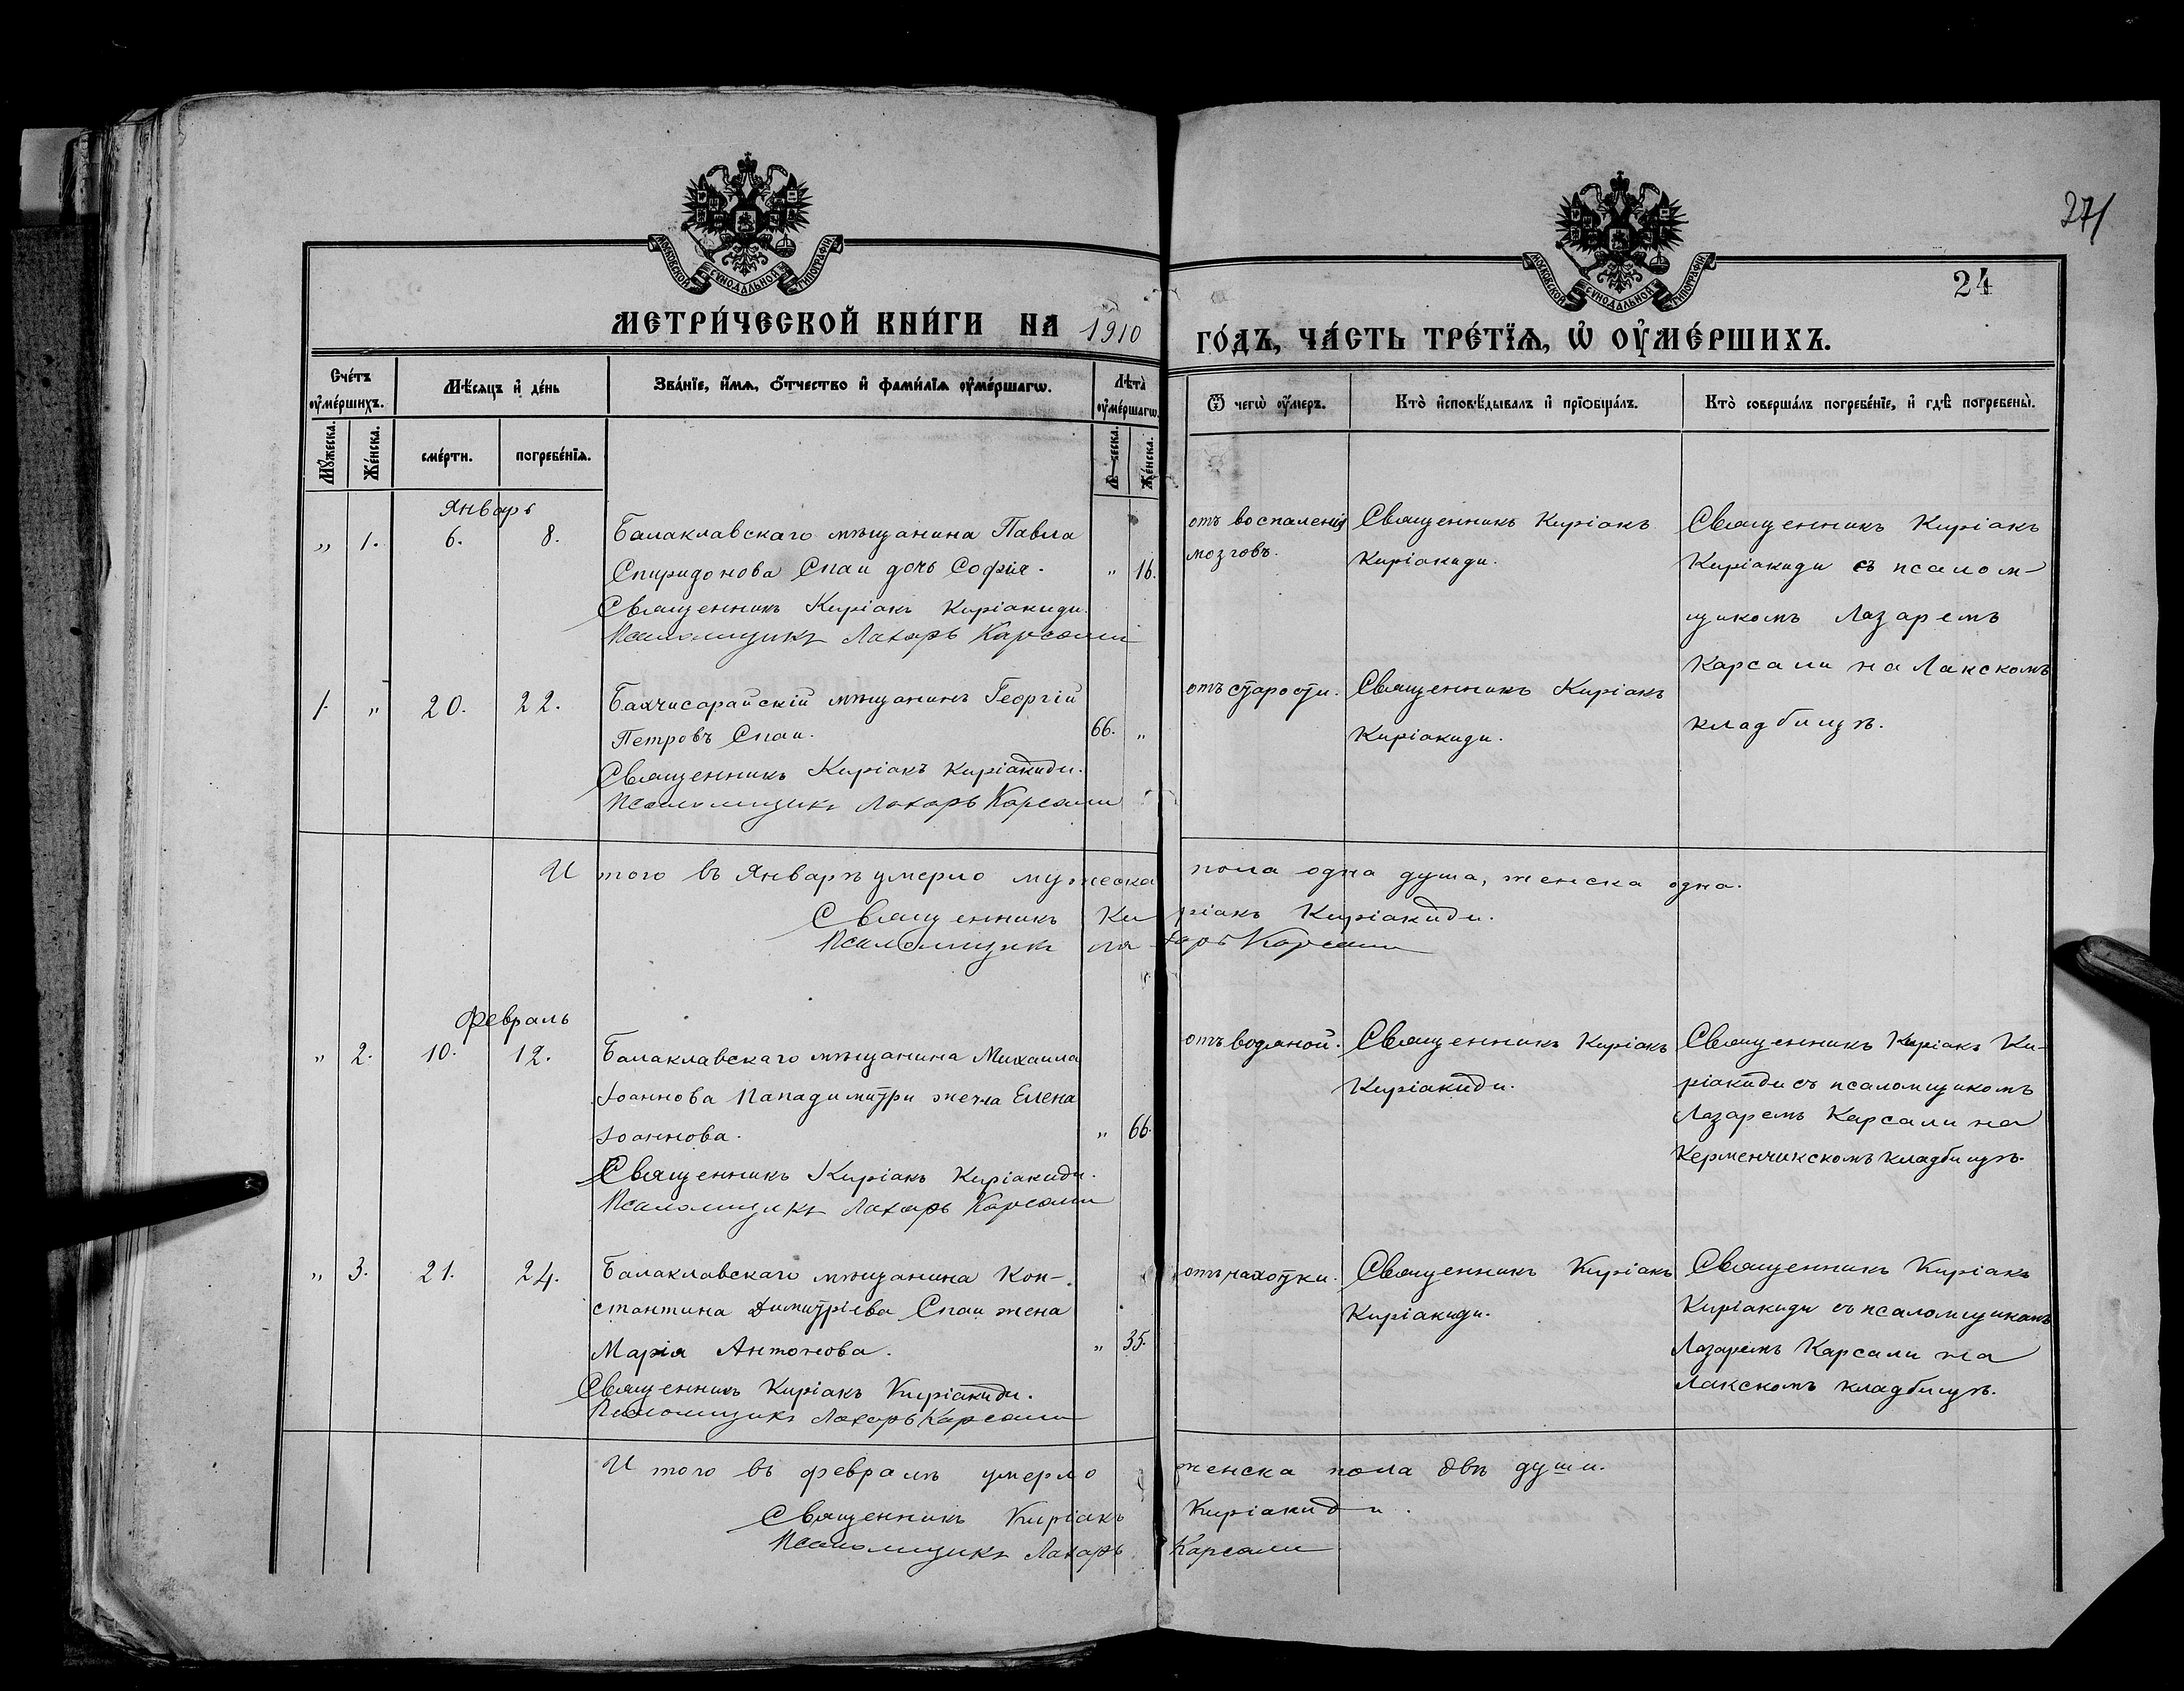 271
24
МОСКОВСКОЙ СѴНОДАЛЬНОЙ ТИПОГРАФІИ
МОСКОВСКОЙ СѴНОДАЛЬНОЙ ТИПОГРАФІИ
МЕТРИ́ЧЕСКОЙ КНИ́ГИ НА 1910 ГО́ДЪ, ЧА́СТЬ ТРЕ́ТЇѦ, Ѡ҆ ОУ҆МЕ́РШИХЪ.
Сче́тъ оу҆ме́ршихъ.
Мѣ́сяцъ и҆ де́нь
Зва́нїе, и҆́мя, ѻ҆́тчество и҆ фами́лїя оу҆ме́ршагѡ.
Лѣ́та оу҆ме́ршагѡ.
Ѿ чегѡ̀ оу҆́меръ.
Кто̀ и҆сповѣ́дывалъ и҆ прїѡбща́лъ.
Кто̀ соверша́лъ погребе́нїе, и҆ гдѣ̀ погребены̀.
Мꙋ́жеска.
Же́нска.
сме́рти.
погребе́нїя.
Же́нска.
Январь
" 1. 6. 8.
Балаклавскаго мѣщанина Павла
Спиридонова Спаи дочь Софія.
" 16.
Священникъ Киріакъ Киріакиди.
Псаломщикъ Лазарь Карсали
отъ воспаленія
мозговъ.
Священникъ Киріакъ
Киріакиди.
Священникъ Киріакъ
Киріакиди съ псалом-
щикомъ Лазаремъ
Карсали на Лакскомъ
кладбищѣ.
1. " 20. 22.
Бахчисарайскій мѣщанинъ Георгій
Петровъ Спаи.
66. "
Священникъ Киріакъ Киріакиди.
Псаломщикъ Лазарь Карсали
отъ старости.
Священникъ Киріакъ
Киріакиди.
И того въ Январѣ умерло мужеска пола одна душа, женска одна.
Священникъ Киріакъ Киріакиди.
Псаломщикъ Лазарь Карсали
Февраль
" 2. 10. 12.
Балаклавскаго мѣщанина Михаила
Іоаннова Пападимитри жена Елена
Іоаннова.
" 66.
Священникъ Киріакъ Киріакиди.
Псаломщикъ Лазарь Карсали
отъ водяной.
Священникъ Киріакъ
Киріакиди.
Священникъ Киріакъ Ки-
ріакиди съ псаломщикомъ
Лазаремъ Карсали на
Керменчикскомъ кладбищѣ.
" 3. 21. 24.
Балаклавскаго мѣщанина Кон-
стантина Димитріева Спаи жена
Марія Антонова.
" 35.
Священникъ Киріакъ Киріакиди.
Псаломщикъ Лазарь Карсали
отъ чахотки.
Священникъ Киріакъ
Киріакиди.
Священникъ Киріакъ
Киріакиди съ псаломщикомъ
Лазаремъ Карсали на
Лакскомъ кладбищѣ.
И того въ февралѣ умерло женска пола двѣ души.
Священникъ Киріакъ Киріакиди.
Псаломщикъ Лазарь Карсали